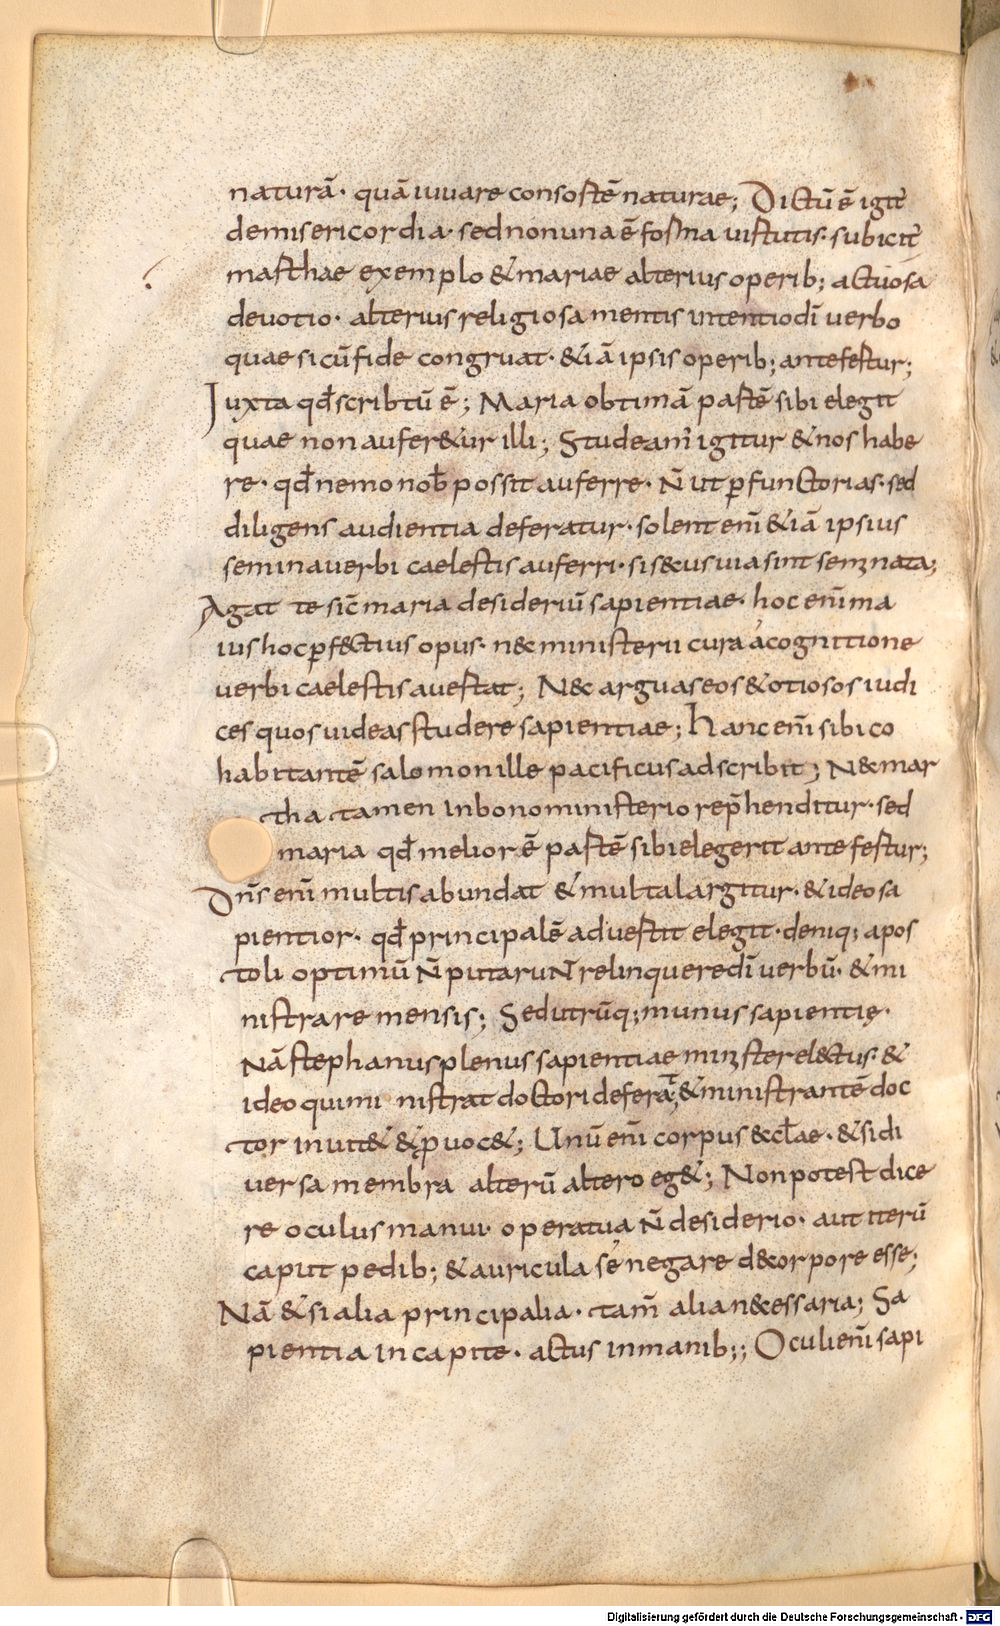 naturā· quā iuuare consortē naturae; Dictū ē igit̄
demisericordia· sed non una ē forma uirtutis· subicit̄
marthae exemplo & mariae alterius operib; actuosa
deuotio· alterius religiosa mentis intentio dī uerbo
quae si cū fide congruat· & iā ipsis operib; antefertur;
Iuxta qđ scribtū ē; Maria obtimā partē sibi elegit
quae non aufer&ur illi; Studeam̄ igitur & nos habe
re· qđ nemo nob̄ possit auferre· N̄ ut ꝑfunctorias· sed
diligens audientia deferatur· solent enī & iā ipsius
semina uerbi caelestis auferri· si s&us uia sint seminata;
Agat te sic̄ maria desideriū sapientiae· hoc enī ma
ius hoc ꝑf&ctius opus· n& ministerii cura a cognitione
uerbi caelestis auertat; N& arguas eos & otiosos iudi
ces quos uideas studere sapientiae; hanc enī sibi co
habitantē salomon ille pacificus adscribit; N& mar
tha tamen in bono ministerio rep̄henditur· sed
maria qđ meliorē partē sibi elegerit antefertur;
Dn̄s enī multis abundat & multa largitur· & ideo sa
pientior· qđ principalē aduertit elegit· deniq; apos
toli optimū n̄ putarunt relinquere dī uerbū· & mi
nistrare mensis; Sed utrūq; munus sapientię·
Nā stephanus plenus sapientiae minister el&ctus· &
ideo qui mi nistrat doctori deferat̄; & ministrantē doc
tor inuit& & ꝓuoc&; Unū enī corpus &cl̄ae· & si di
uersa membra alterū altero eg&; Non potest dice
re oculus manui· opera tua n̄ desiderio· aut iterū
caput pedib; & auricula se negare d& corpore esse;
Nā & si alia principalia· tam̄ alia n&essaria; Sa
pientia in capite· actus in manib;; Oculi enī sapi
Digitalisierung gefördert durch die Deutsche Forschungsgemeinschaft - DFG